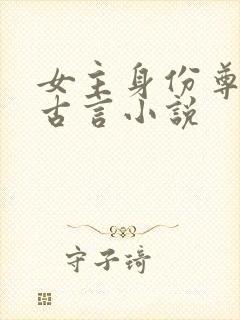 女主身份尊
古言小说
守子琦